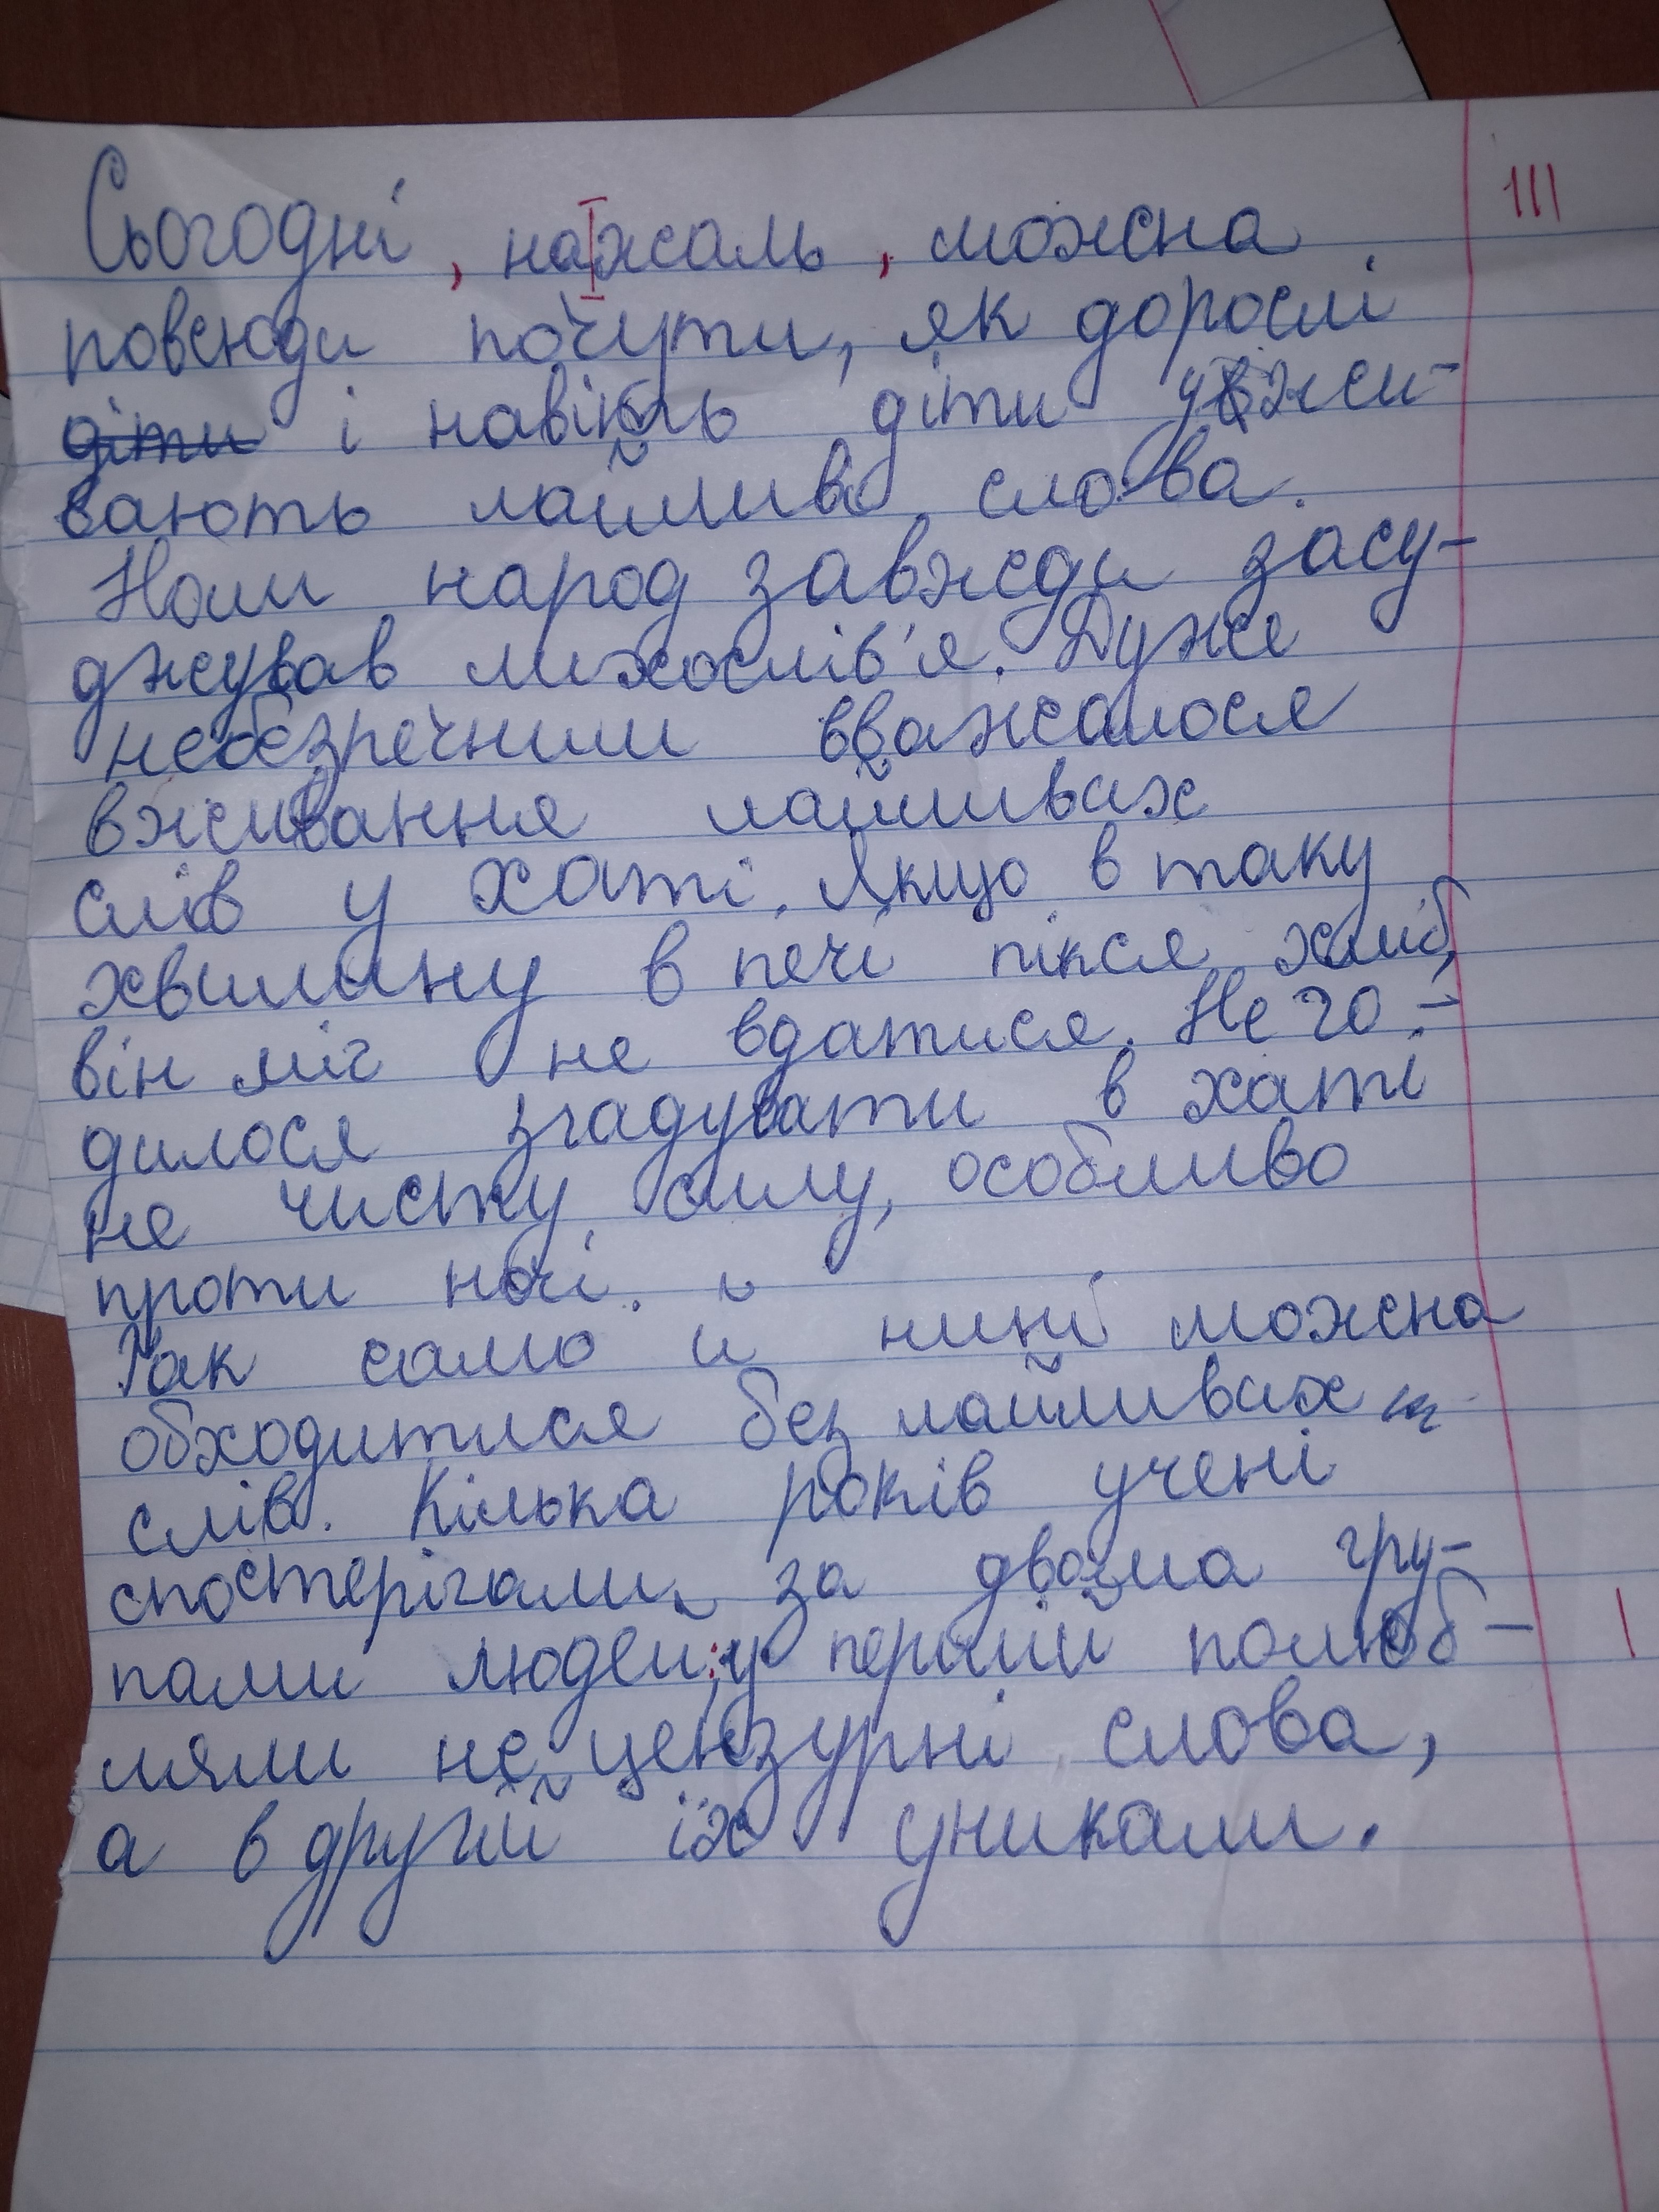 Сьогодні, нажаль, можна
повсюди почути, як дорослі
діти і навіть діти ужи-
вають лайливі слова.
Наш народ завжди засу-
джував лихослів'я. Дуже
небезпечним вважалося
вживання лайливих
слів у хаті. Якщо в таку
хвилину в печі пікся хліб,
він міг не вдатися. Не го-
дилося згадувати в хаті
не чисту силу, особливо
проти ночі.
Так само й нині можна
обходитися без лайливих
слів. Кілька років учені
спостерігали за двома гру-
пами людей: у першій полюб-
ляли не цензурні слова,
а в другій їх уникали.